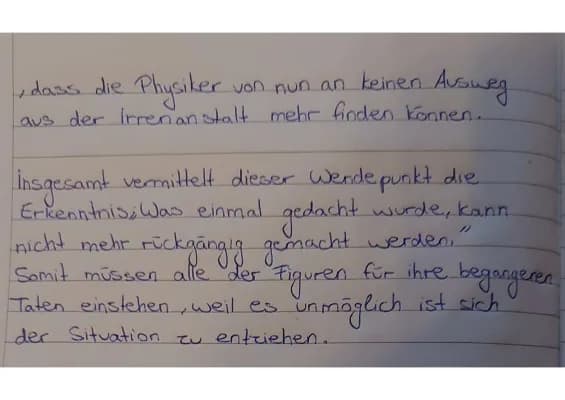 , dass die Physiker von nun an keinen Ausweg
aus der Irrenanstalt mehr finden können.
Insgesamt vermittelt dieser Wendepunkt die
Erkenntnis: „Was einmal gedacht wurde, kann
nicht mehr rückgängig gemacht werden."
Somit müssen alle der Figuren für ihre begangenen
Taten einstehen, weil es unmöglich ist sich
der Situation zu entziehen.